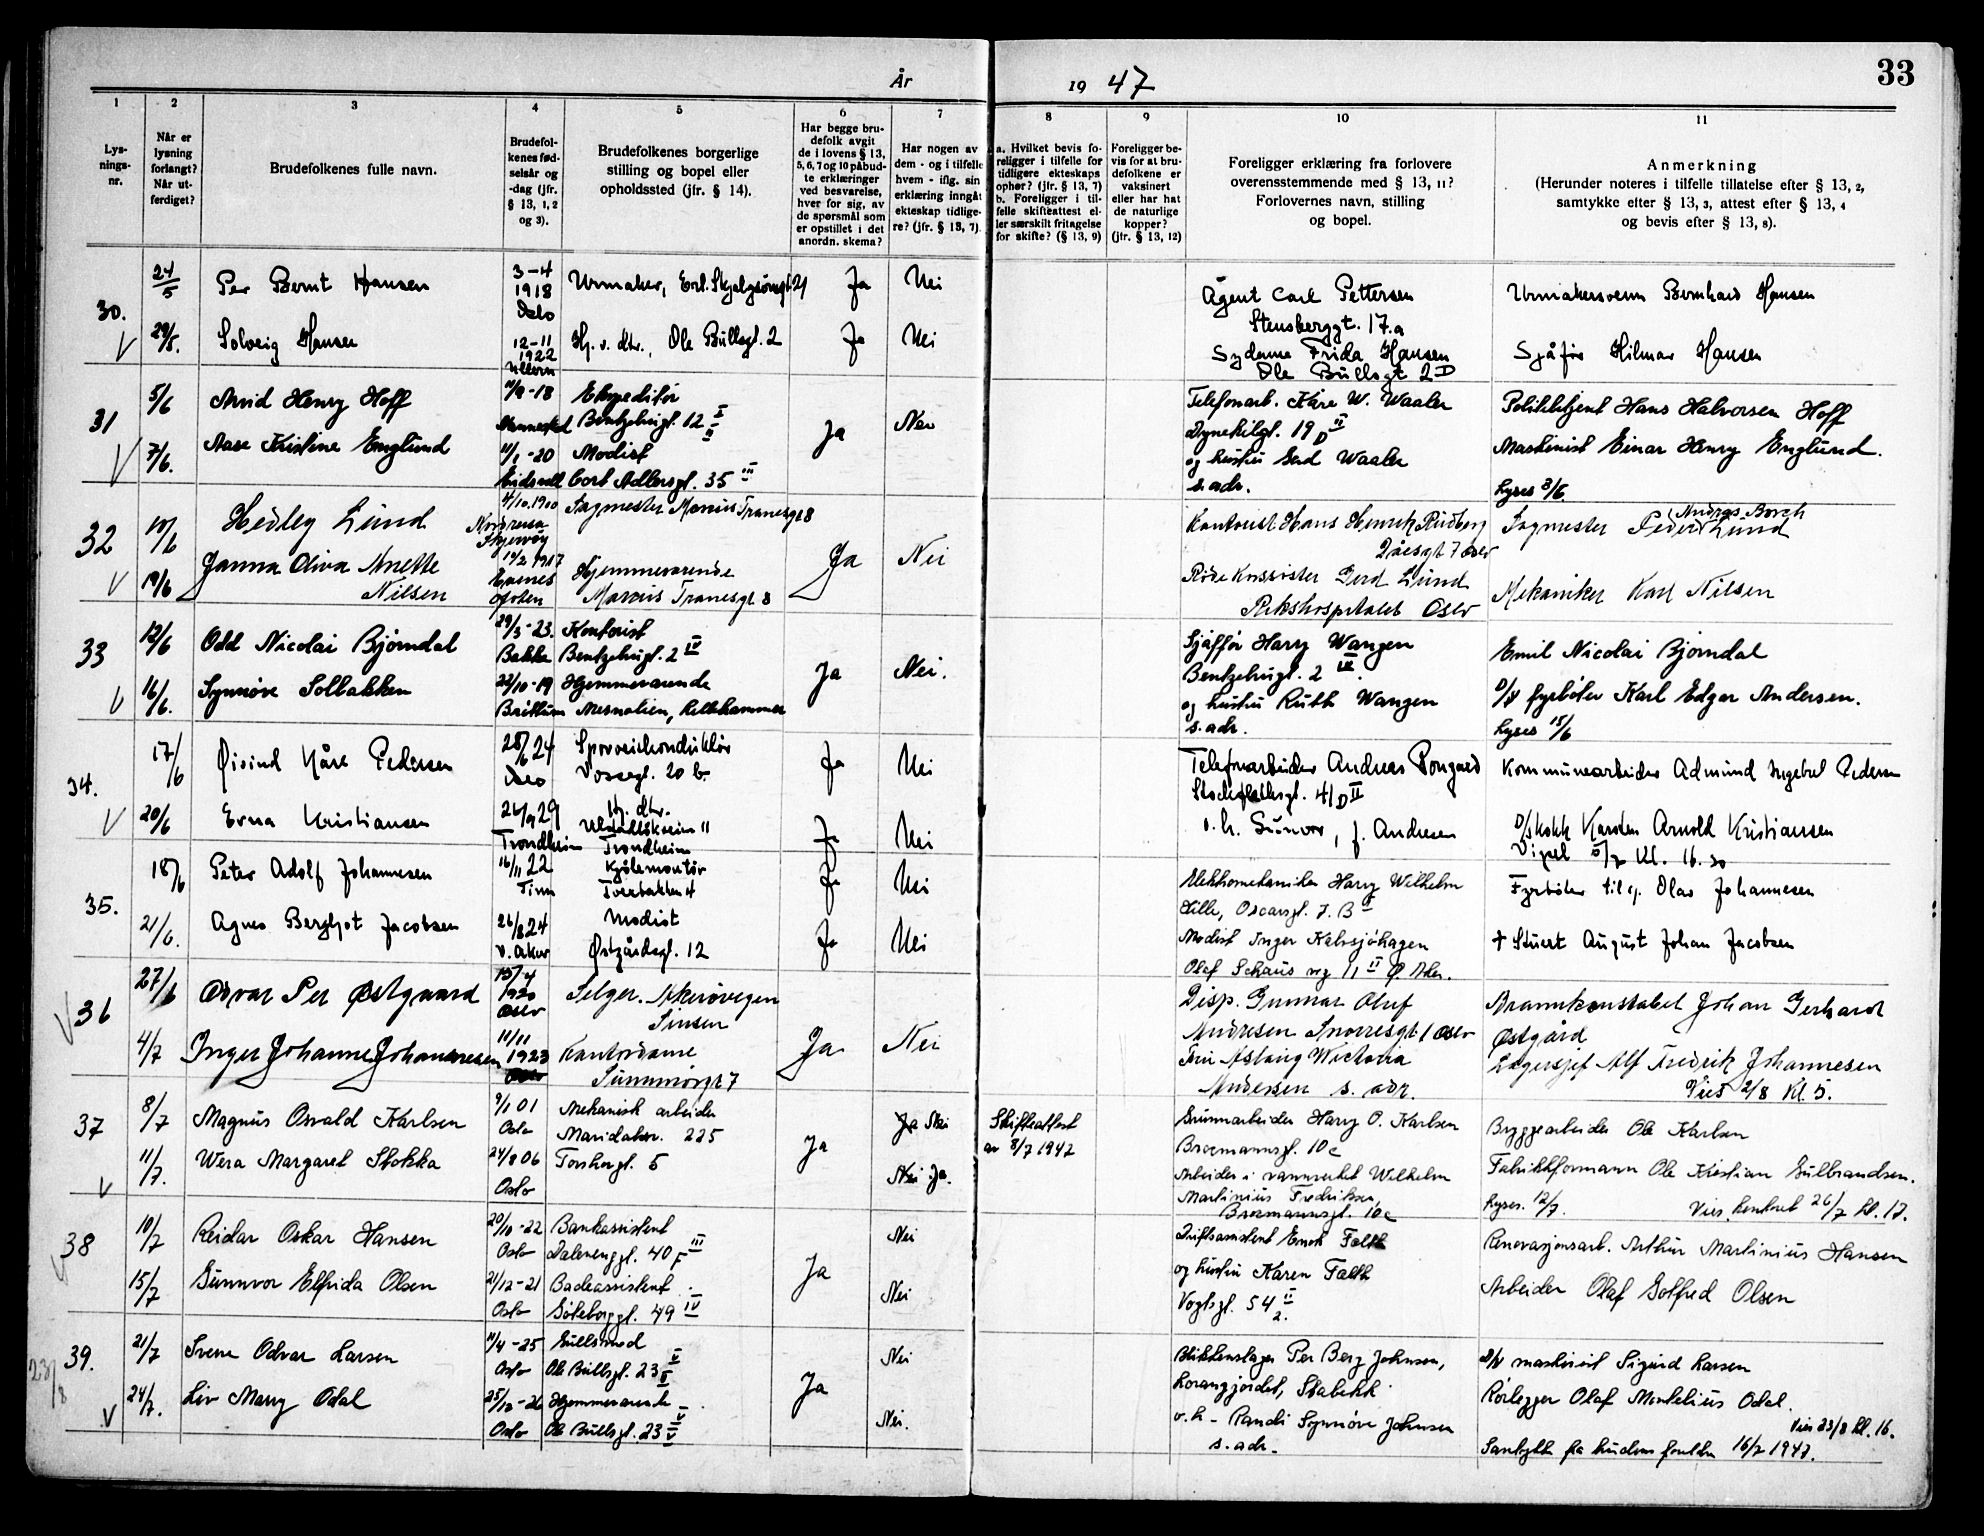 33
År 1947
1 2 3 4 5 6 7 8 9 10 11
Lys-
nings-
nr.
Når er
lysning
forlangt?
Når ut-
ferdiget?
Brudefolkenes fulle navn.
Brudefol-
kenes fød-
selsår og
-dag (jfr.
§ 13, 1, 2
og 3).
Brudefolkenes borgerlige
stilling og bopel eller
opholdssted (jfr. § 14).
Har begge bru-
defolk avgit
de i lovens § 13,
5, 6, 7 og 10 påbud-
te erklæringer
ved besvarelse,
hver for sig, av
de spørsmål som
er opstillet i det
anordn. skema?
Har nogen av
dem - og i tilfelle
hvem - iflg. sin
erklæring inngåt
ekteskap tidlige-
re? (jfr. § 13, 7).
a. Hvilket bevis fo-
religger i tilfelle for
tidligere ekteskaps
ophør? (jfr. § 13, 7)
b. Foreligger i til-
felle skifteattest el-
ler særskilt fritagelse
for skifte? (§ 13, 9)
Foreligger be-
vis for at bru-
defolkene er
vaksinert
eller har hat
de naturlige
kopper?
(jfr. § 13, 12)
Foreligger erklæring fra forlovere
overensstemmende med § 13, 11?
Forlovernes navn, stilling
og bopel.
Anmerkning
(Herunder noteres i tilfelle tillatelse efter § 13, 2,
samtykke efter § 13, 3, attest efter § 13, 4
og bevis efter § 13, 8).
30.
24/5 Per Bernt Hansen
3-4
1918
Oslo
Urmaker, Erl. Skjalgsønsgt. 21
Ja Nei
Agent Carl Pettersen
Stensberggt. 17.a
Urmakersvenn Bernhard Hansen
V 29/5. Solveig Hansen
12-11
1922
Ullern
Hj. v. dtr., Ole Bullsgt. 2
Ja Nei
Sydame Frida Hansen
Ole Bullsgt 2 D
Sjåfør Hilmar Hansen
31
5/6 Arvid Henry Hoff
11/9-18
Ekspeditør
Bentzebrugt. 12 I II
Ja Nei
Telefonarb. Kåre W. Waaler
Dynekilgt. 19 D II
Politibetjent Hans Halvorsen Hoff
V 7/6. Aase Kristine Englund
11/1-20
Eidsvoll
Modist
Cort Adlersgt. 35 III
og hustru Gerd Waaler
s. adr.
Maskinist Einar Henry Englund.
Lyses 8/6
32
10/6 Hedley Lund
4/10.1900
Nordreisa
Skjervøy
Fagmester Marcus Tranesgt 8
Ja Nei
Kontorist Hans Henrik Rudberg
7 Oslo
Fagmester Peder (Andreas Borch) Lund
V 19/6 Janna Oliva Anette
Nilsen
14/2 1917
Evenes
Ofoten
Hjemmeværende
Marcus Tranesgt 8
Røde Korssøster Gerd Lund
Rikshospitalet Oslo
Mekaniker Karl Nilsen
33
12/6 Odd Nicolai Bjørndal
29/3-23.
Bakke
Kontorist
Bentzebrugt. 2 IV
Ja Nei.
Sjåfför Harry Wangen
Bentzebrugt. 2 IV.
Emil Nicolai Bjørndal
V 16/6. Synnøve Solbakken
22/10-19
Brøttum
Hjemmeværende
Mesnalien, Lillehammer
og hustru Ruth Wangen
s. adr.
D/v fyrbøter Karl Edgar Andersen.
Lyses 15/6
34.
17/6 Øivind Kåre Pedersen
25/6 24
Oslo
Sporveiskonduktør
Vossegt. 20 b.
Ja Nei
Telefonarbeider Andreas
41 D II
Kommunearbeider Admund Ingebret Pedersen
V 20/6 Erna Kristiansen
26/9 29
Trondheim
Hj. dtr.
11
Trondheim
Ja Nei
o. h. Gunvor, f. Andresen
D/s kokk Karsten Arnold Kristiansen
Vigsel 5/7 kl. 16.30
35.
18/6 Peter Adolf Johannesen
16/11 22
Tinn
Kjølemontør
Toerbakken 4
Ja Nei
Harry Wilhelm
Lille, Oscarsgt. 7. B I
Fyrbøter til sj. Olav Johannesen
21/6. Agnes Bergljot Jacobsen
26/8 24
V. Aker
Modist
Østgårdsgt. 12
Ja Nei
Modist Inger Kalvsjøhagen
Olaf Schous vej 11 II Ø. Aker.
† Stuert August Johan Jacobsen
V 36
27/6 Odvar Per Østgaard
15/4
1920
Oslo
Selger. Akersvegen
Sinsen
Ja Nei
Disp. Gunnar Oluf
Andresen Snorresgt. 1 Oslo
Brannkonstabel Johan Gerhard
Østgård
4/7 Inger Johanne Johannesen
11/11
1923
Oslo
Kontordame
Sunnmørgt 7
Fru Aslaug Victoria
Andersen s. adr.
Lagersjef Alf Fredrik Johannesen
Vies 2/8 Kl. 5.
37
8/7 Magnus Osvald Karlsen
9/1 01
Oslo
Mekanisk arbeider
Maridalsv. 225
Ja
Ja Nei
Skifteattest
av 8/7 1947
Grunnarbeider Harry O. Karlsen
Brochmannsgt. 10c
Bryggearbeider Ole Karlsen
V 11/7. Wera Margaret Stokka
24/8 06
Oslo
Torshovgt. 5
Nei Ja.
Arbeider i vannverket Wilhelm
Martinius Fredriksen,
Brochmannsgt. 10c
Fabrikkformann Ole Kristian Gulbrandsen.
Lyses. 12/7. Vies kontoret 26/7 kl. 17.
38
10/7 Reidar Oskar Hansen
20/10-22
Oslo
Bankassistent
Dælenenggt. 40 F III
Ja
Nei
Driftsassistent Enok Falth
Renovasjonsarb. Arthur Martinius Hansen
V 15/7 Gunnvor Elfrida Olsen
21/12-21
Oslo
Badeassistent
Göteborggt. 49 IV
Nei
og hustru Karen Falth
Vogtsgt. 54 II 2.
Arbeider Olaf Golfred Olsen
39.
21/7 Svenn Odvar Larsen
11/4-25
Oslo
Gullsmed
Ole Bullsgt. 23 V II
Ja
Nei
Blikkenslager Per Berg Johnsen,
Lorangjordet, Stabekk
D/v maskinist Sigurd Larsen
23/8
V 24/7. Liv Mary Odal
25/12-26
Oslo
Hjemmeværende
Ole Bullsgt. 23 V V
Nei.
o. h - Randi Synnøve Johnsen
s. adr.
Rørlegger Olaf Montelius Odal.
Vies 23/8 kl. 16.
Samtykke fra brudens foreldre 16/7 1947.